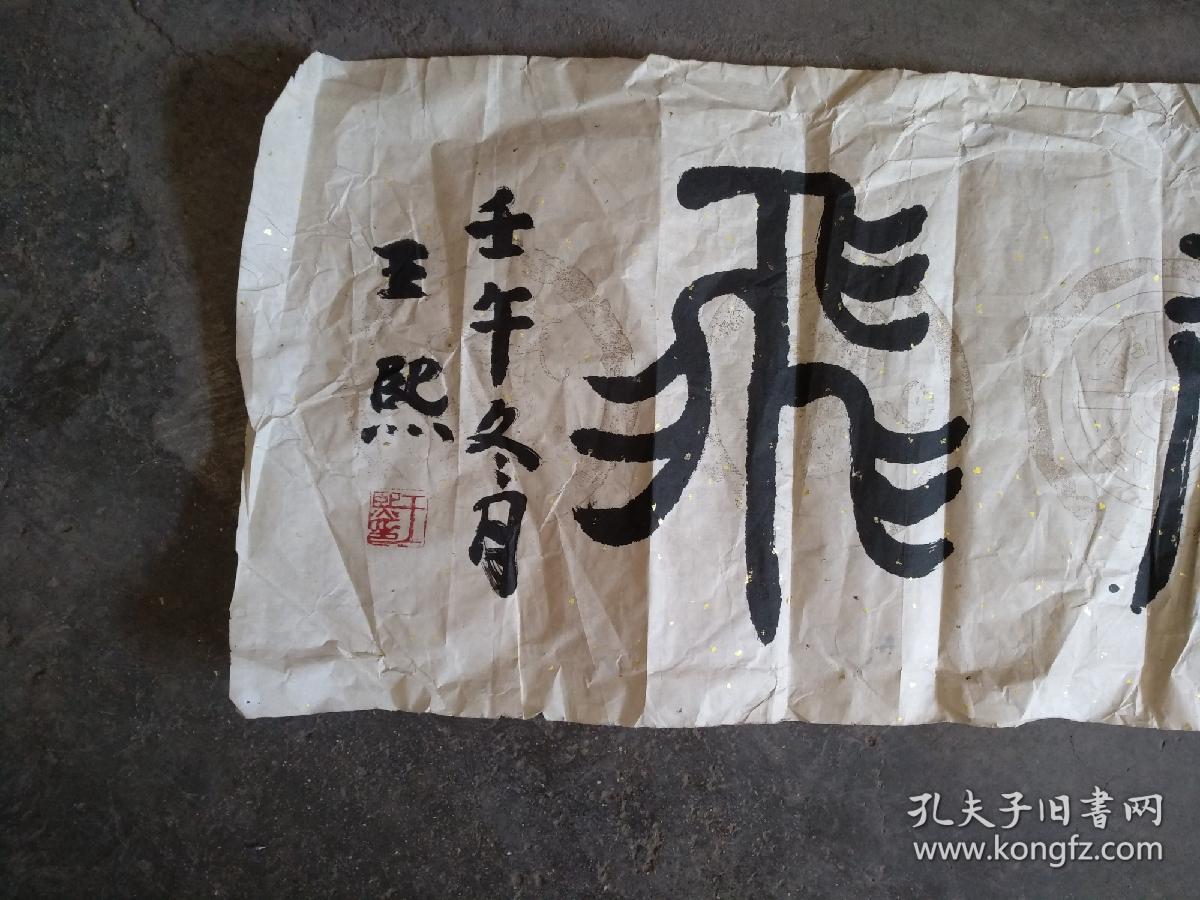 飛
壬午冬月
王熙
孔夫子旧書网
www.kongfz.com